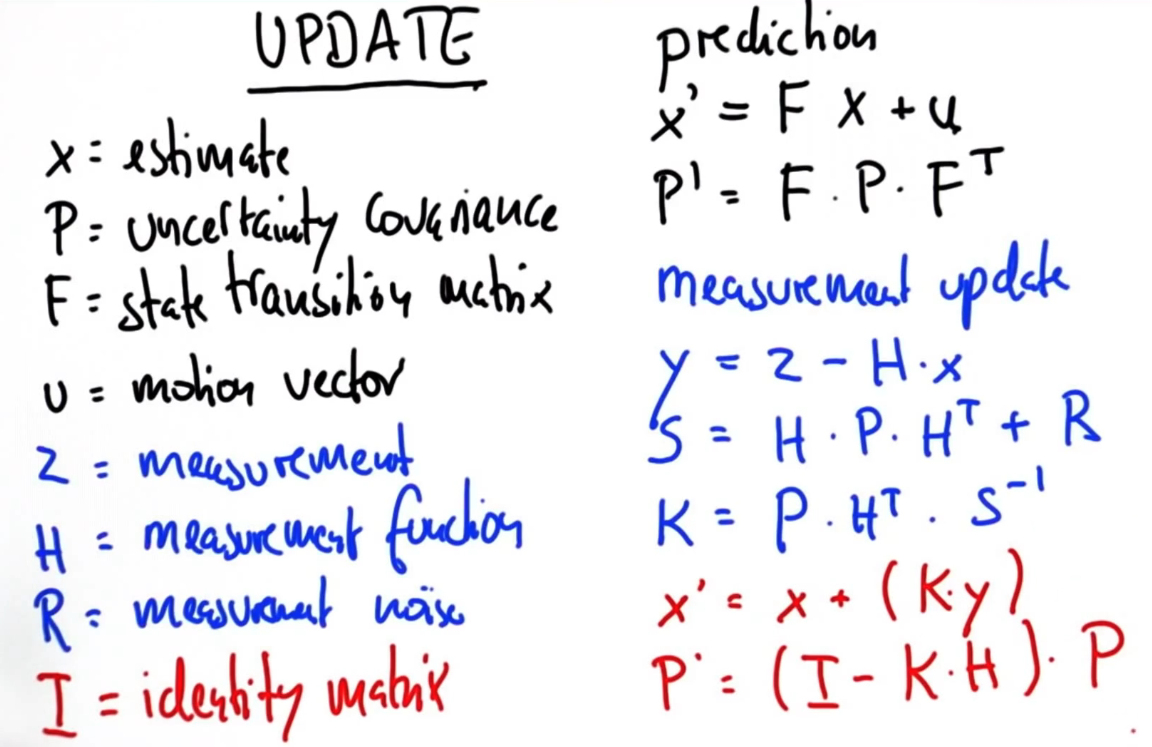 UPDATE
x = estimate
P = uncertainty covariance
F = state transition matrix
u = motion vector
z = measurement
H = measurement function
R = measurement noise
I = identity matrix
prediction
x' = F x + u
P' = F · P · Fᵀ
measurement update
y = z - H · x
S = H · P · Hᵀ + R
K = P · Hᵀ · S⁻¹
x' = x + (K·y)
P' = (I - K·H) · P